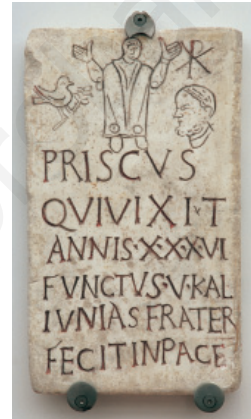 PRISCVS
QVIVIXI·T
ANNIS·XXXVI
FVNCTVS·V·KAL
IVNIAS FRATER
FECIT IN PACE